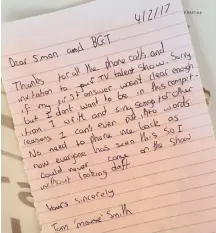 4/2/17
Dear Simon and BGT
Thanks for all the phone calls and
invitation to TV talent show. Sorry
if my 1st answer wasn't clear enough
but I don't want to be in this compet-
ition. I write and sing songs for other
reasons I can't even put into words
No need to phone me back as
now everyone has seen this so I
could never come on the show
without looking daft
Yours sincerely
Tom "mouse" Smith